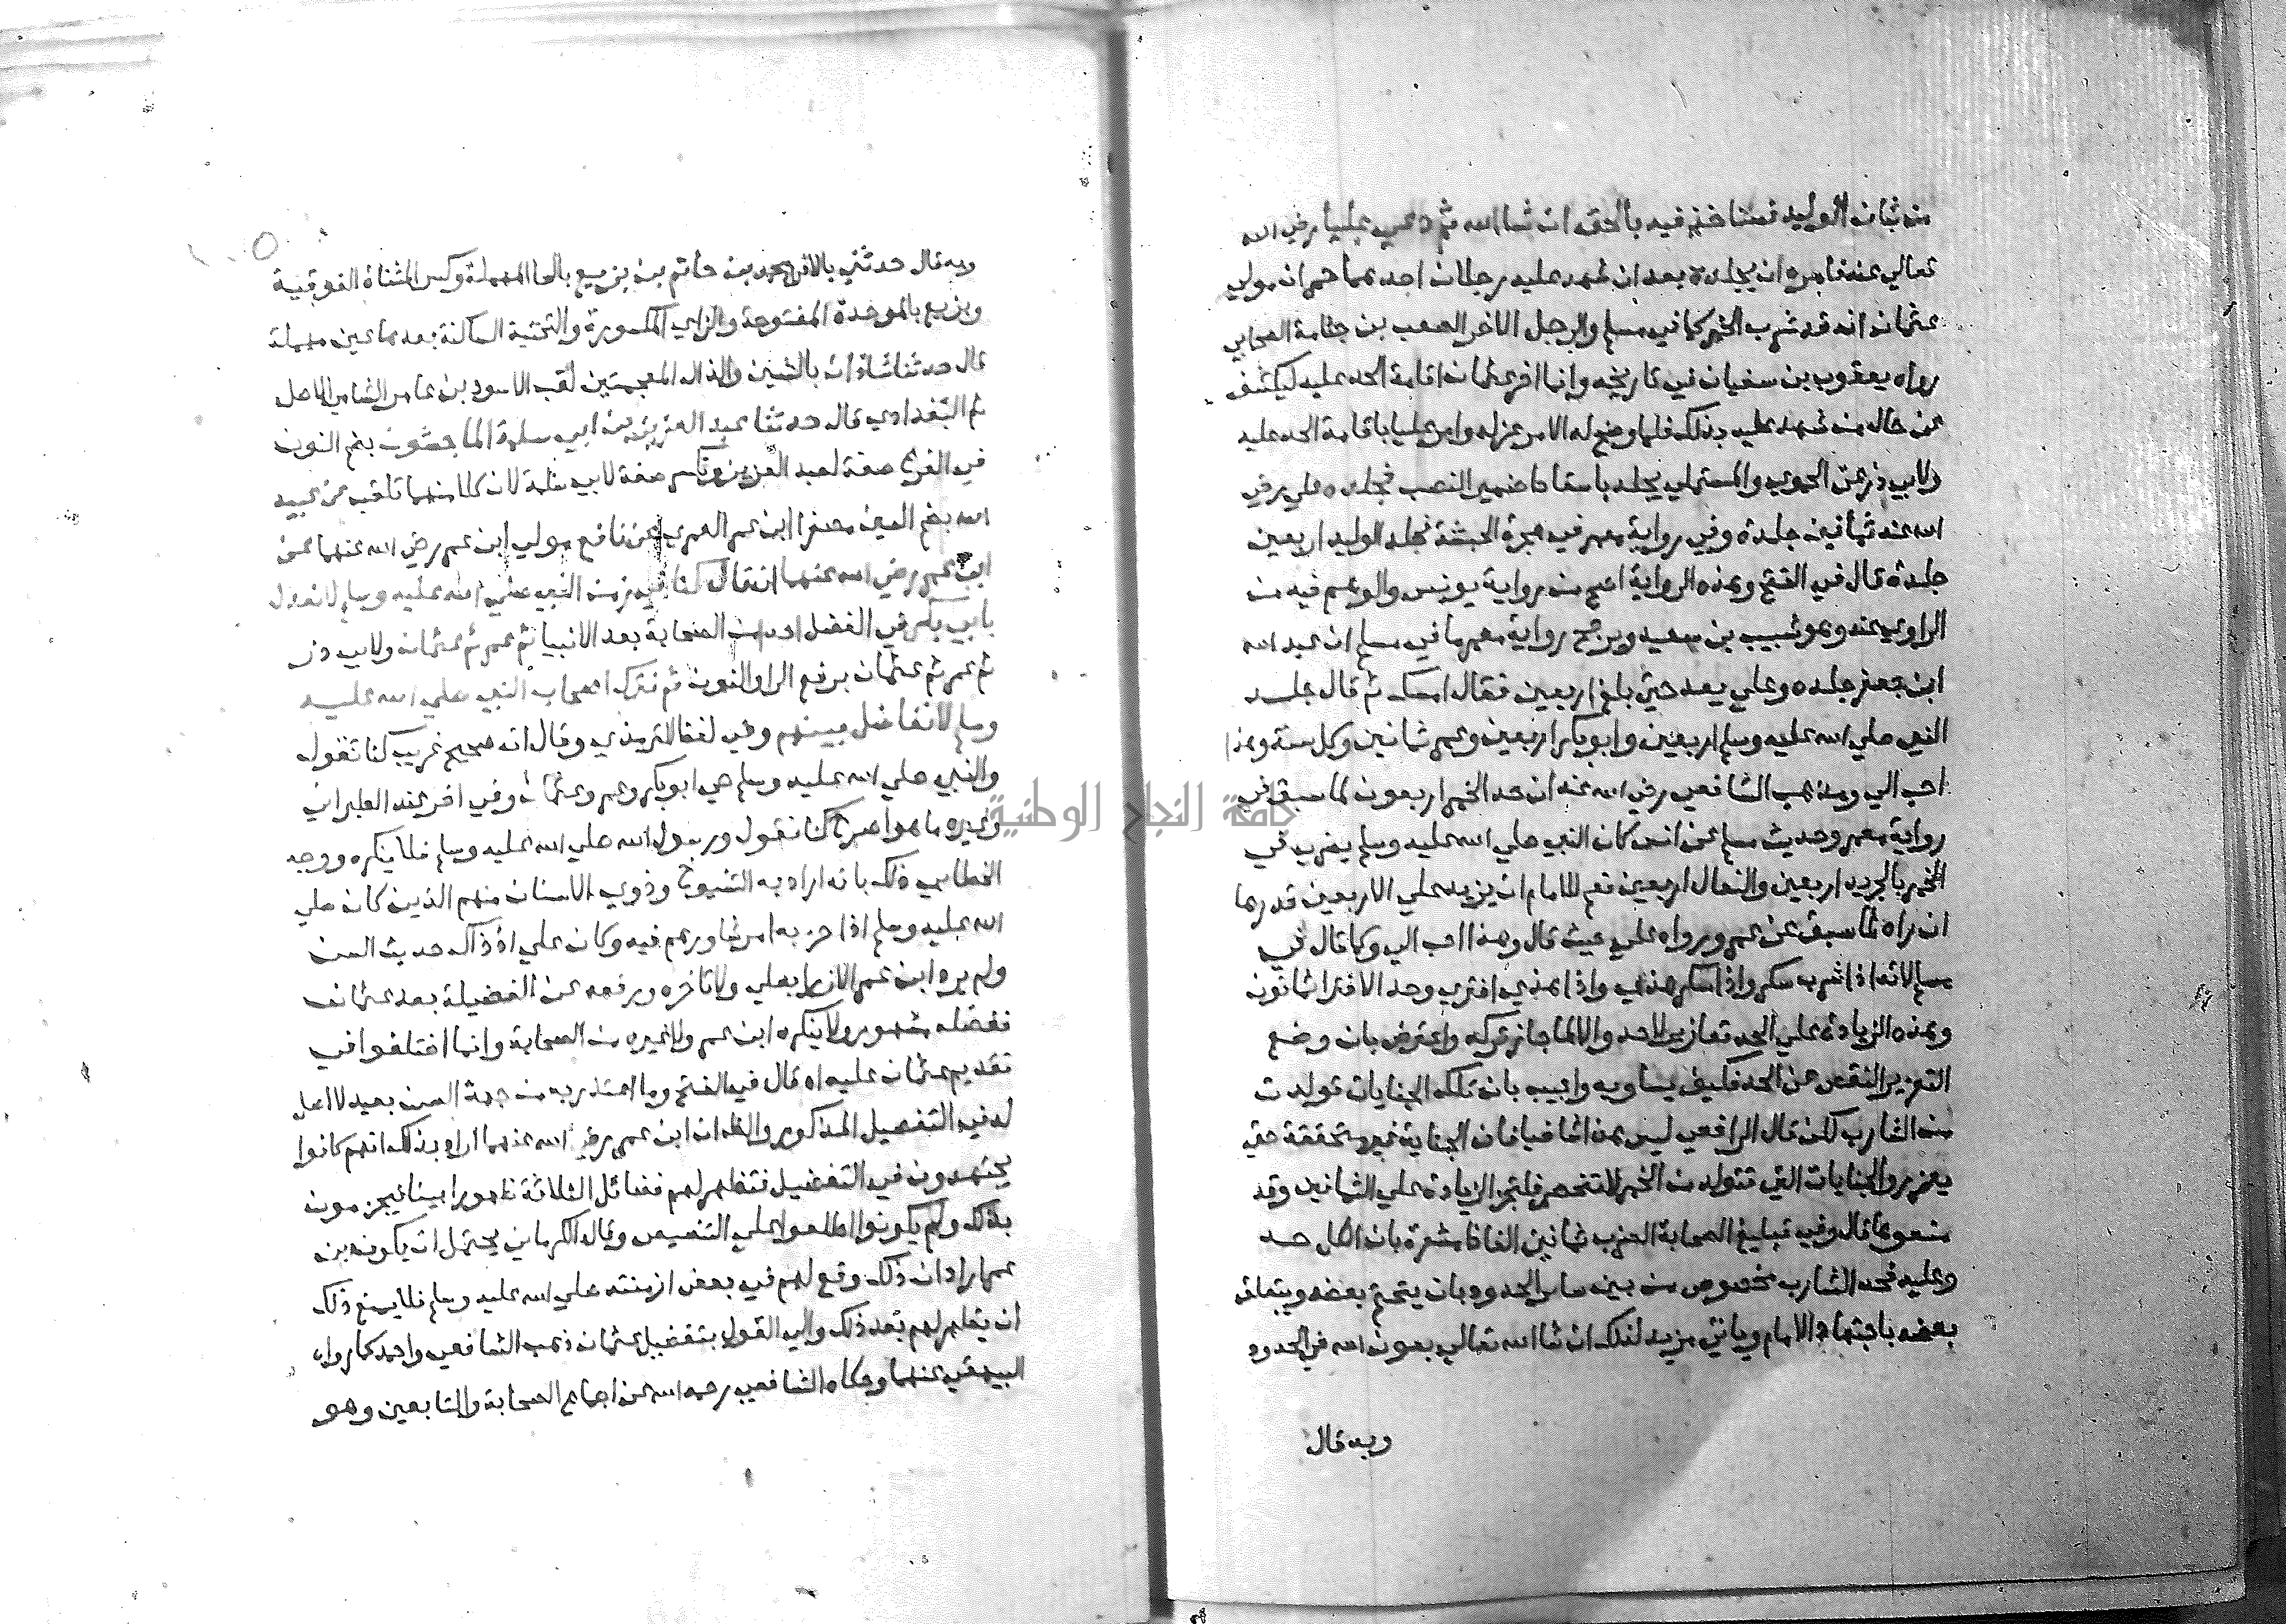 من شان الوليد فسناخذ فيه بالحق ان شا الله ثم دعي عليا رضي الله
تعالي عنه فامره ان يجلده بعد ان شهد عليه رجلان احدهما حمران مولي
عثمان انه قد شرب الخمر كما في مسلم والرجل الاخر الصعب بن جثامة الصحابي
رواه يعقوب بن سفيان في تاريخه وانما اخر عثمان اقامة الحد عليه ليكشف
عن حال من شهد عليه بذلك فلما وضح له الامر عزله وامر عليا باقامة الحد عليه
ولابي ذر عن الحموي والمستملي يجلد باسقاط ضمير النصب فجلده علي رضي
الله عنه ثمانين جلدة وفي رواية معمر في هجرة الحبشة فجلد الوليد اربعين
جلدة قال في الفتح وهذه الرواية اصح من رواية يونس والوهم فيه من
الراوي عنه وهو شبيب بن سعيد ويرجح رواية معمر ما في مسلم ان عبد الله
ابن جعفر جلده وعلي يعد حتي بلغ اربعين فقال امسك ثم قال جلد
النبي صلي الله عليه وسلم اربعين وابو بكر اربعين وعمر ثمانين وكل سنة وهذا
احب الي ومذهب الشافعي رضي الله عنه ان حد الخمر اربعون لما سبق في
رواية معمر وحديث مسلم عن انس كان النبي صلي الله عليه وسلم يضرب في
الخمر بالجريد اربعين والنعال اربعين نعم للامام ان يزيد علي الاربعين قدرها
ان راه لما سبق عن عمر ورواه علي حيث قال وهذا احب الي وكما قال في
مسلم لانه اذا شرب سكر واذا سكر هذي واذا هذي افتري وحد الافترا ثمانون
وهذه الزيادة علي الحد تعازير لا حد والا لما جاز تركه واعترض بان وضع
التعزير النقص عن الحد فكيف يساويه واجيب بان تلك الجنايات تولدت
من الشارب لكن قال الرافعي ليس هذا شافيا فان الجناية غير متحققة حتي
يعزر والجنايات التي تتولد من الخمر لا تنحصر فلتجز الزيادة علي الثمانين وقد
منعوها قال وفي تبليغ الصحابة الضرب ثمانين الفاظ مشعرة بان الكل حد
وعليه فحد الشارب مخصوص من بين ساير الحدود بان يتحتم بعضه ويتعلق
بعضه باجتهاد الامام وياتي مزيد لذلك ان شا الله تعالي بعون الله في الحدود
وبه قال
وبه قال حدثني بالافراد محمد بن حاتم بن بزيع بالحا المهملة وكسر المثناة الفوقية
وبزيع بالموحدة المفتوحة والزاي المكسورة والتحتية الساكنة بعدها عين مهملة
قال حدثنا شاذان بالشين والذال المعجمتين لقب الاسود بن عامر الشامي الاصل
ثم البغدادي قال حدثنا عبد العزيز بن ابي سلمة الماجشون بضم النون
في الفرع صفة لعبد العزيز وبكسر صفة لابي سلمة لان كلا منهما تلقب عن عبيد
الله بضم العين مصغرا ابن عمر العمري عن نافع مولي ابن عمر رضي الله عنهما عن
ابن عمر رضي الله عنهما انه قال كنا في زمن النبي صلي الله عليه وسلم لا نعدل
بابي بكر في الفضل احدا من الصحابة بعد الانبيا ثم عمر ثم عثمان ولابي ذر
ثم عمر ثم عثمان برفع الرا والنون ثم نترك اصحاب النبي صلي الله عليه
وسلم لا نفاضل بينهم وفي لفظ للترمذي وقال انه صحيح غريب كنا نقول
والنبي صلي الله عليه وسلم حي ابو بكر وعمر وعثمان وفي اخر عند الطبراني
وغيره ما هو اصرح كنا نقول ورسول الله صلي الله عليه وسلم فلا ينكره ووجه
الخطابي ذلك بانه اراد به الشيوخ وذوي الاسنان منهم الذين كان صلي
الله عليه وسلم اذا حزبه امر شاورهم فيه وكان علي اذ ذاك حديث السن
ولم يرد ابن عمر الازرا بعلي ولا تاخره ورفعه عن الفضيلة بعد عثمان
ففضله مشهور ولا ينكره ابن عمر ولا غيره من الصحابة وانما اختلفوا في
تقديم عثمان عليه اه قال في الفتح وما اعتذر به من جهة السن بعيد لا اصل
له في التفصيل المذكور والظاهر ان ابن عمر رضي الله عنهما اراد بذلك انهم كانوا
يجتهدون في التفضيل فتظهر لهم فضائل الثلاثة ظهورا بينا فيجزمون
بذلك ولم يكونوا اطلعوا علي التنصيص وقال الكرماني يحتمل ان يكون ابن
عمر اراد ان ذلك وقع لهم في بعض ازمنته صلي الله عليه وسلم فلا يمنع ذلك
ان يظهر لهم بعد ذلك والي القول بتفضيل عثمان ذهب الشافعي واحمد كما رواه
البيهقي عنهما وحكاه الشافعي رحمه الله عن اجماع الصحابة والتابعين وهو
جامعة النجاح الوطنية